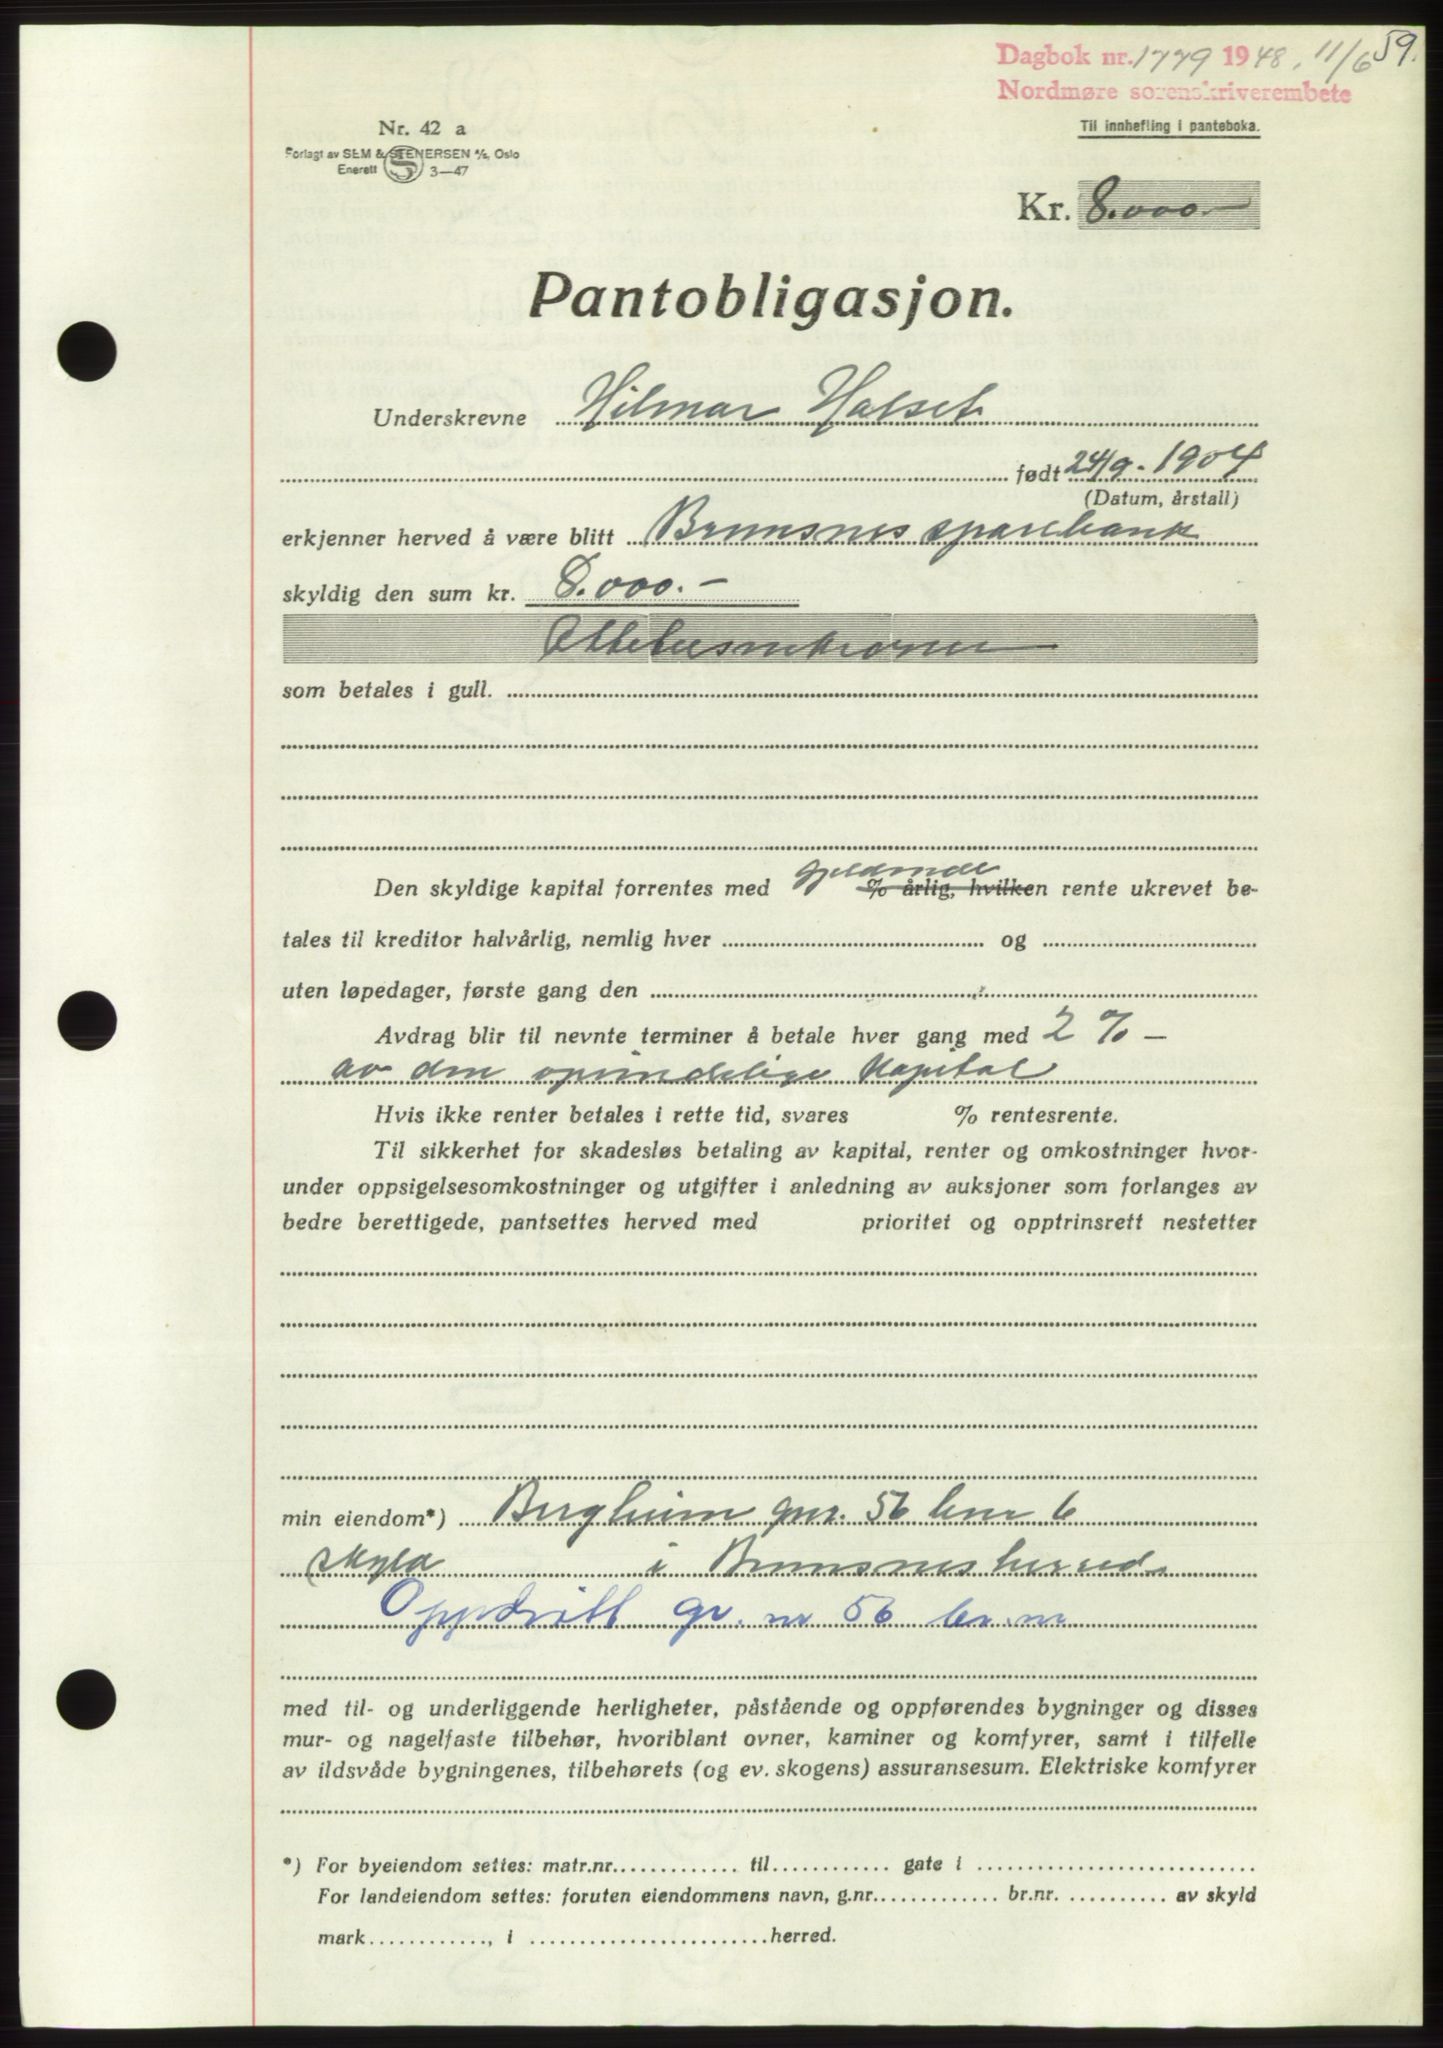 59.
Dagbok nr. 1779 1948. 11/6
Nordmøre sorenskriverembete
Nr. 42 a
Til innhefting i panteboka.
Forlagt av SEM & STENERSEN A/S, Oslo
Enerett S 3—47
Kr. 8.000.—
Pantobligasjon.
Underskrevne Hilmar Halset
født 24/9. 1904
(Datum, årstall)
erkjenner herved å være blitt Bremsnes sparebank
skyldig den sum kr. 8.000.—
Ottetusenkroner
som betales i gull.
gjeldende
Den skyldige kapital forrentes med % årlig, hvilken rente ukrevet be-
tales til kreditor halvårlig, nemlig hver og
uten løpedager, første gang den
Avdrag blir til nevnte terminer å betale hver gang med 2 % —
av den oprindelige kapital
Hvis ikke renter betales i rette tid, svares % rentesrente.
Til sikkerhet for skadesløs betaling av kapital, renter og omkostninger hvor-
under oppsigelsesomkostninger og utgifter i anledning av auksjoner som forlanges av
bedre berettigede, pantsettes herved med prioritet og opptrinsrett nestetter
min eiendom*) Bergheim gnr. 56 bnr 6
skyld i Bremsnes herred
Oppdritt gr. nr 56 br. nr
med til- og underliggende herligheter, påstående og oppførendes bygninger og disses
mur- og nagelfaste tilbehør, hvoriblant ovner, kaminer og komfyrer, samt i tilfelle
av ildsvåde bygningenes, tilbehørets (og ev. skogens) assuransesum. Elektriske komfyrer
*) For byeiendom settes: matr.nr. til gate i
For landeiendom settes: foruten eiendommens navn, g.nr. br.nr. av skyld
mark , i herred.